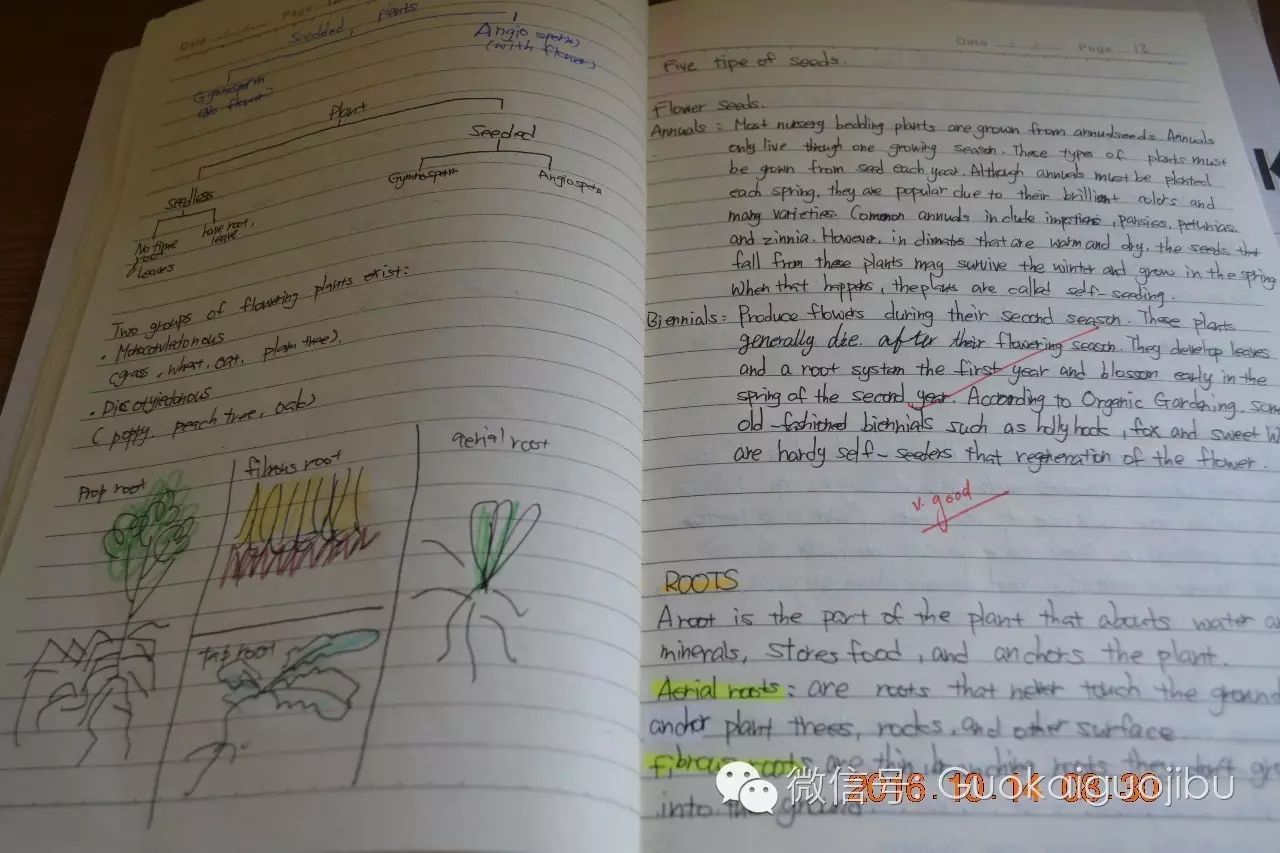 Date Page
Seedded, plants
Angio sperm
(with flower)
Gymnosperm
(No flower)
Plant
Seeded
Gymnosperm
Angiosperm
Seedless
No true
root
leaves
have root,
leave
Two groups of flowering plants exist:
• Monocotyledonous
(grass, wheat, oat, plam tree).
• Dicotyledonous
(poppy, peach tree, oak)
Prop root
fibrous root
aerial root
tap root
Date Page 12
Five tipe of seeds.
Flower seeds.
Annuals: Most nursery bedding plants are grown from annudseeds. Annuals
only live through one growing season. These types of plants must
be gown from seed each year. Although annuals must be planted
each spring, they are popular due to their brilliant colors and
many varieties. Common annuals include impatiens, pansies, petunias.
and zinnia. However, in climates that are warm and dry, the seeds that
fall from these plants may survive the winter and grow in the spring
When that happens, the plants are called self-seeding.
Biennials: Produce flowers during their second season. These plants
generally die. after their flowering season. They develop leaves
and a root system the first year and blossom early in the
spring of the second year. According to Organic Gardening, som
old-fashioned biennials such as hollyhock, fox and sweet W
are hardy self-seeders that regeneration of the flower.
v. good
ROOTS
A root is the part of the plant that abouts water a
minerals, stores food, and anchors the plant.
Aerial roots: are roots that never touch the ground
anchor plant threes, rocks, and other surface.
fibrous roots are thin, branching roots that
into the ground.
微信号: Guokaiguojibu
2016.10.14 08:30